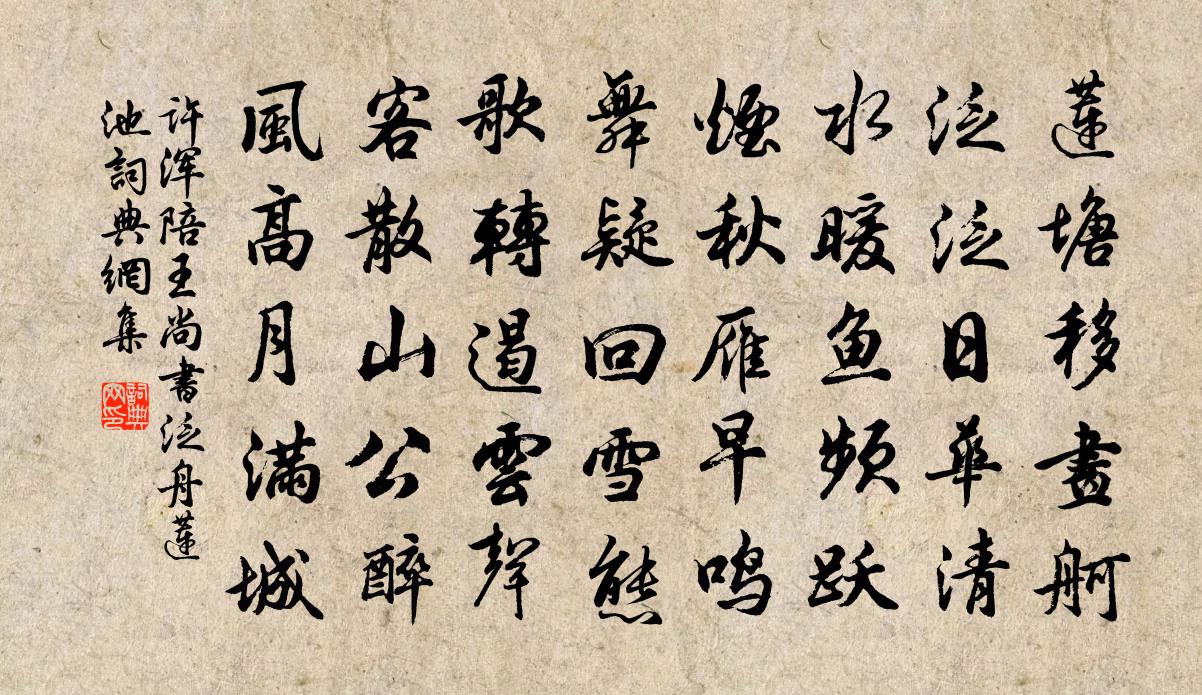 蓮塘移畫舸
泛泛日華清
水暖鱼頻跃
煙秋雁早鸣
舞疑回雪態
歌轉遏雲聲
客散山公醉
風高月滿城
许浑陪王尚書泛舟蓮
池詞典網集
詞典网印